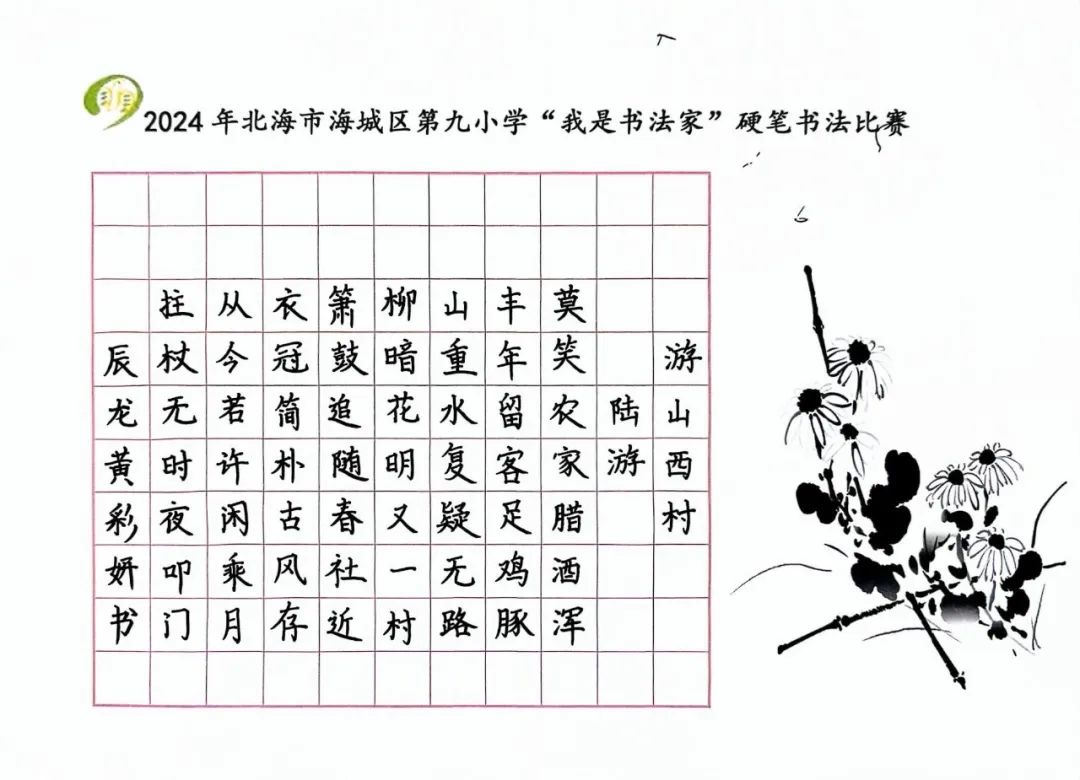 2024年北海市海城区第九小学“我是书法家”硬笔书法比赛
游山西村
陆游
莫笑农家腊酒浑
丰年留客足鸡豚
山重水复疑无路
柳暗花明又一村
箫鼓追随春社近
衣冠简朴古风存
从今若许闲乘月
拄杖无时夜叩门
辰龙黄彩妍书